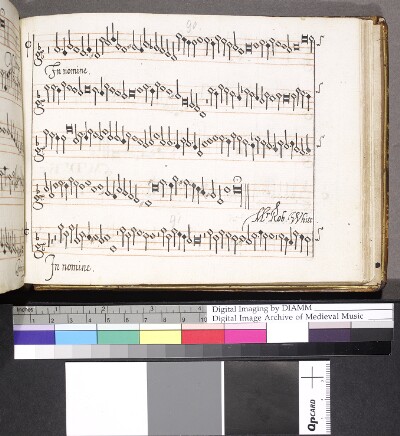 90
In nomine.
Mr Rob: Whitt
91
In nomine.
inches 1 2 3 4
1 2 3 4 5 6 7 8 9 10
Digital Imaging by DIAMM
Digital Image Archive of Medieval Music
QPCARD